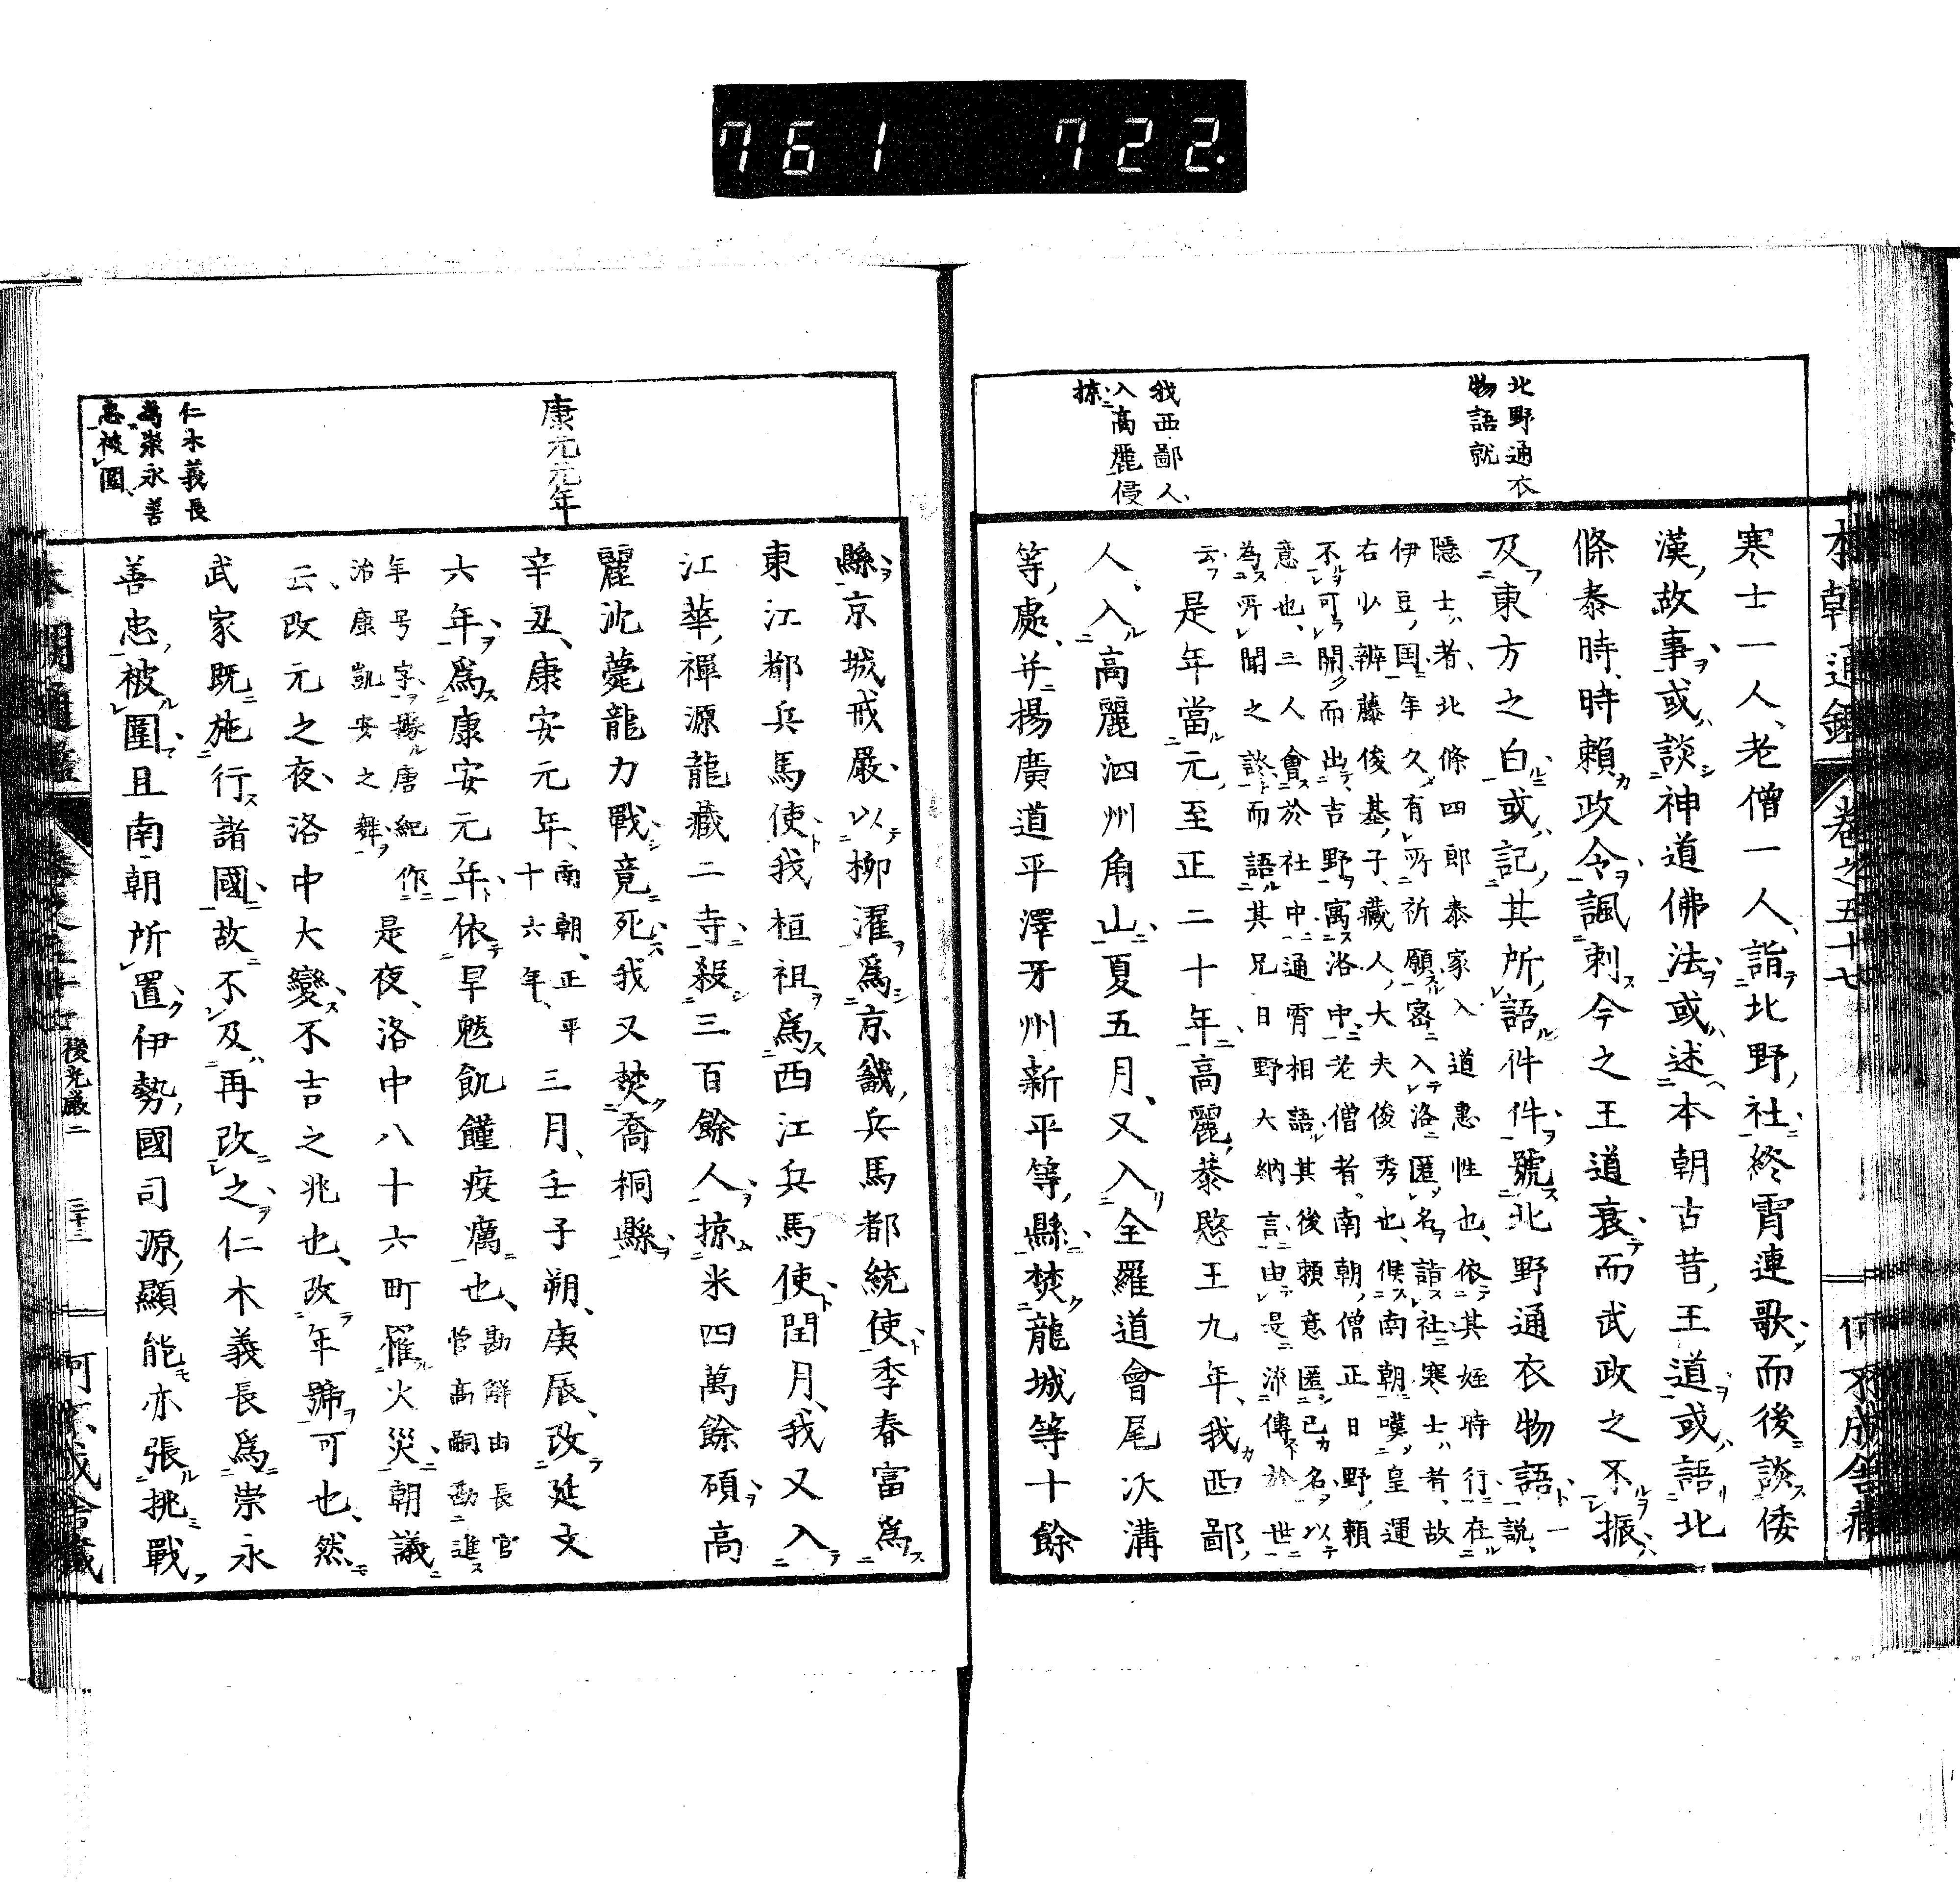 761 722.
北野通衣
物語就
我西鄙人
入高麗侵
掠
本朝通鑑 卷之五十七 何不成舎藏
寒士一人、老僧一人、詣北野社、終霄連歌、而後談倭
漢故事、或談神道佛法、或述本朝古昔王道、或語北
條泰時、時頼政令、諷刺今之王道衰而武政之不振、
及東方之白、或記其所語件件、號北野通衣物語、一說、
隱士者、北條四郎泰家入道惠性也、依其姪時行在
伊豆国年久、有所祈願、密入洛匿名詣社、寒士者、故
右少辨藤俊基子、藏人大夫俊秀也、候南朝嘆皇運
不可開而出吉野寓洛中、老僧者、南朝僧正日野頼
意也、三人會於社中、通霄相語、其後頼意匿己名、以
為所聞之談而語其兄日野大納言、由是派傳於世
云、
是年當元至正二十年、高麗恭愍王九年、我西鄙
人、入高麗泗州角山、夏五月、又入全羅道會尾沃溝
等處、并揚廣道平澤牙州新平等縣、焚龍城等十餘
康元元年
仁木義長
為崇永善
忠被圍
縣、京城戒嚴、以柳濯爲京畿兵馬都統使、李春富爲
東江都兵馬使、我桓祖爲西江兵馬使、閏月、我又入
江華、禪源龍藏二寺、殺三百餘人、掠米四萬餘碩、高
麗沈夢龍力戰竟死、我又焚喬桐縣、
辛丑、康安元年、南朝、正平十六年、三月、壬子朔、庚辰、改延文
六年、爲康安元年、依旱魃飢饉疫癘也、勘解由長官菅高嗣勘進
年号字、據唐紀作治康凱安之舞、是夜、洛中八十六町罹火災、朝議
云、改元之夜、洛中大變、不吉之兆也、改年號可也、然
武家既施行諸國、故不及再改之、仁木義長爲崇永
善忠、被圍、且南朝所置伊勢國司源顯能亦張挑戰、
後光嚴二 三十三